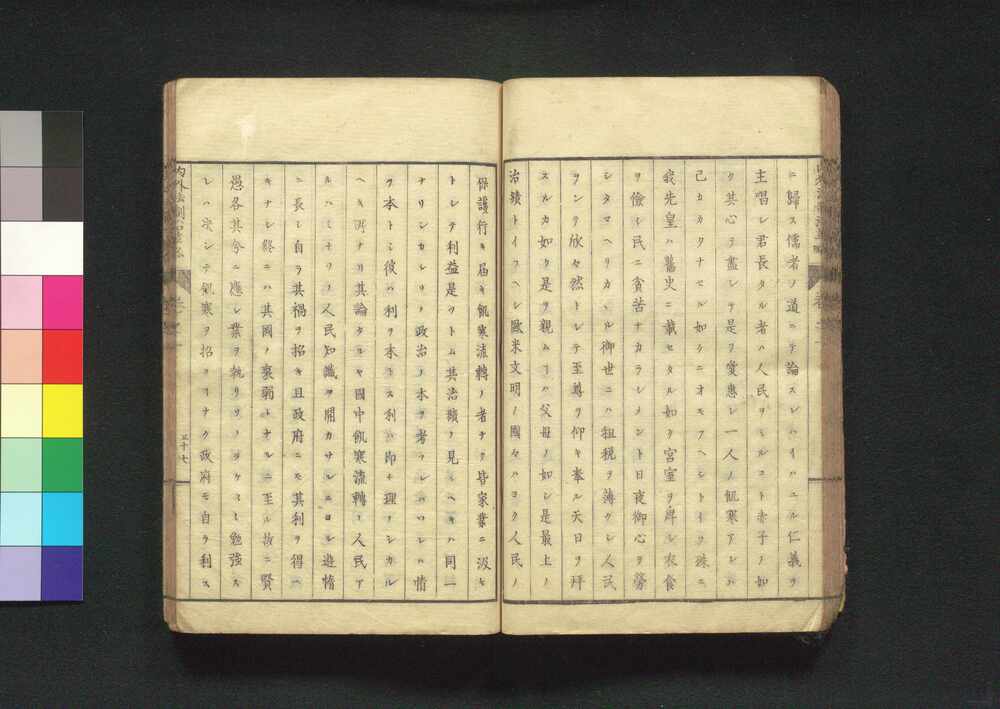 ニ歸ス儒者ノ道ニテ論スレハイハユル仁義ヲ
主唱シ君長タル者ハ人民ヲミルコト赤子ノ如
ク其心ヲ盡シテ是ヲ愛惠シ一人ノ飢寒アレハ
己カカクナセル如クニオモフヘシトイフ殊ニ
我先皇ハ舊史ニ載セタル如ク宮室ヲ卑シ衣食
ヲ儉シ民ニ貪苦ナカラシメント日夜御心ヲ勞
シタマヘリカヽル御世ニハ租税ヲ薄クシ人民
ヲシテ欣々然トシテ至尊ヲ仰キ奉ル天日ヲ拜
スルカ如ク是ヲ親ムコハ父母ノ如シ是最上ノ
治績トイフヘシ歐米文明ノ國々ハヨク人民ノ
保護行キ届キ飢寒流轉ノ者ナク皆家業ニ汲々
トシテ利益是ヲトム其治績ノ見ルヘキハ同一
ナリシカレリノ政治ノ本ヲ考フレハコレハ情
ヲ本トシ彼ハ利ヲ本トス利ハ即チ理ノシカル
ヘキ所ナリ其論タルヤ國中飢寒流轉ノ人民ア
ルハミナソノ人民知識ヲ開カサルニヨル遊惰
ニ長シ自ラ其禍ヲ招キ且政府ニモ其利ヲ得ル
キナシ終ニハ其國ノ衰弱トナルニ至ル故ニ賢
愚各其分ニ應シ業ヲ執リソノヲケミ勉強ス
レハ決シテ飢寒ヲ招クコナク政府モ自ラ利ス
三十七